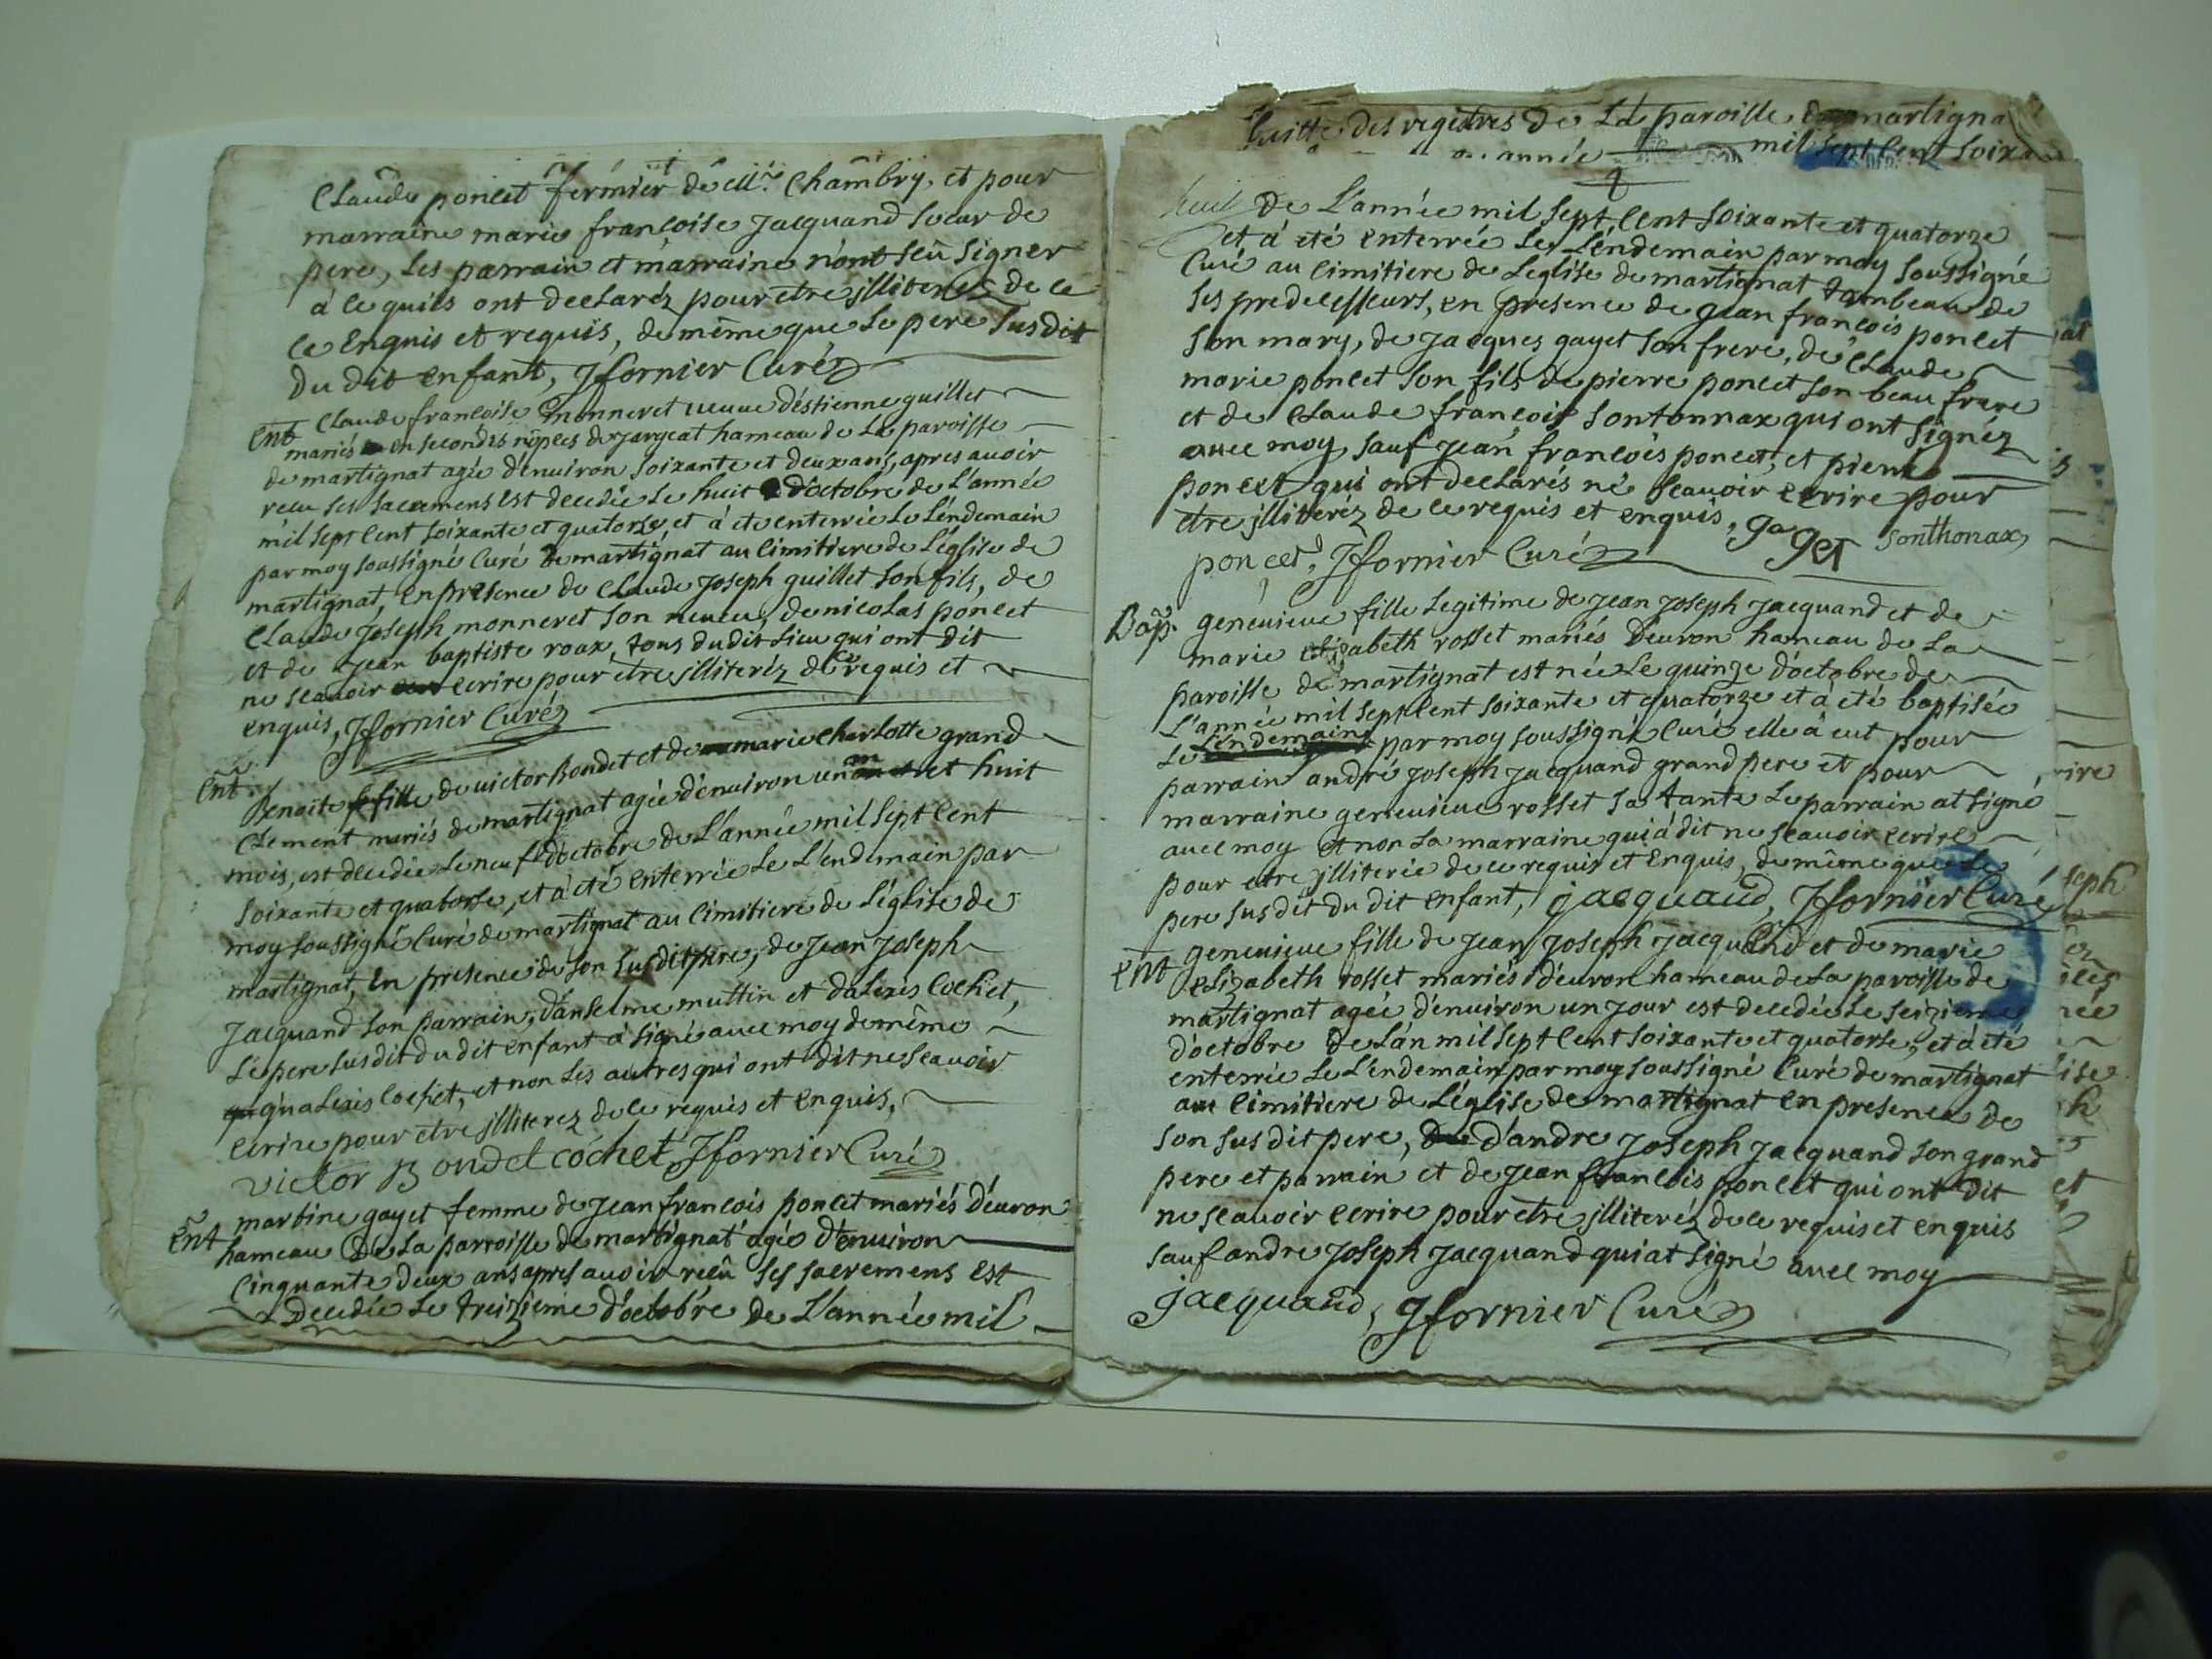 Claude poncet fermier de Mr. Chambry, et pour
marraine marie francoise Jacquand soeur de
pere, Les parrain et marraine n'ont sëu signer
á ce quils ont declaréz pour etre jlliterez de ce
ce Enquis et requis, de même que Le pere susdit
du dit enfant, Jfornier Curéz
Ent Claude francoise monneret veuve d'éstienne guillet
mariés en secondes nôpces de jargeat hameau de La paroisse
de martignat agée d'énuiron soixante et deux ans, apres auoir
recu ses sacremens est decedée Le huit d'octobre de L'année
mil sept Cent soixante et quatorze, et á ete enterrée Le Lendemain
par moy soussigné Curé de martignat au Cimitiere de L'église de
martignat, en presence de Claude Joseph guillet son fils, de
Claude Joseph monneret son neueu, de nicolas poncet
et de Jean baptiste roax, tous du dit Lieu qui ont dit
ne sçauoir ecrire pour etre jlliteréz de ce requis et
enquis, Jfornier Curéz
Ent. Benoite fille de victor Bondet et de marie charlotte grand
Clement mariés de martignat agée d'énuiron un an et huit
mois, est decedée Le neuf d'octobre de L'année mil sept Cent
soixante et quatorse, et á été enterrée Le L'endemain par
moy soussigné Curé de martignat au Cimitiere de L'église de
martignat, en presence de son susdit pere, de Jean Joseph
Jacquand son parrain, d'anselme muttin et d'alexis Cochet,
Le pere susdit du dit enfant á signé auec moy de même
qu'alexis Cochet, et non Les autres qui ont dit ne sçauoir
ecrire pour etre jlliterez de ce requis et enquis,
victor Bondet cochet Jfornier Curé
Ent martine gayet femme de Jean francois poncet mariés d'éuron
hameau de La parroisse de martignat agée d'énuiron
Cinquante deux ans apres auoir recû ses sacremens est
Decedée Le treizieme d'octobre de L'année mil
suitte des regitres de La paroisse de martigna
année mil sept Cent soixan
de L'année mil sept, Cent soixante et quatorze
et á eté enterrée Le Lendemain par moy soussigné
Curé au Cimitiere de Leglise de martignat tombeau de
ses predecesseurs, en presence de Jean francois poncet
son mary, de Jacques gayet son frere, de Claude
marie poncet son fils de pierre poncet son beau frere
et de Claude francois sontonnax qui ont signéz
auec moy sauf Jean francois poncet, et pierre
poncet qui ont declarés ne sçauoir ecrire pour
etre jlliteréz de ce requis et enquis, gayet sonthonax,
poncet, Jfornier Curéz
Bap. geneuieue fille Legitime de Jean Joseph Jacquand et de
marie elizabeth rosset mariés D'éuron hameau de La
paroisse de martignat est née Le quinze d'octobre de
L'année mil sept Cent soixante et quatorze et á eté baptisée
Le Lendemain par moy soussigné Curé elle á eut pour
parrain andré Joseph Jacquand grand pere et pour
marraine geneuieue rosset sa tante Le parrain at signé
auec moy et non La marraine qui á dit ne sçauoir ecrire
pour etre jlliterée de ce requis et Enquis, de même que Le
pere susdit du dit enfant, jacquand, Jfornier Curé
ent geneuieue fille de Jean Joseph Jacquand et de marie
elizabeth rosset mariés d'éuron hameau de La paroisse de
martignat agée d'énuiron un Jour est decedée Le seizieme
d'octobre de L'an mil sept Cent soixante et quatorse, et á eté
enterrée Le L'endemain par moy soussigné Curé de martignat
au Cimitiere de L'église de martignat en presence de
son susdit pere, d'andre Joseph Jacquand son grand
pere et parrain et de Jean francois poncet qui ont dit
ne sçauoir ecrire pour etre jlliteréz de ce requis et enquis
sauf andre Joseph Jacquand qui at signé auec moy
jacquand, Jfornier Curéz